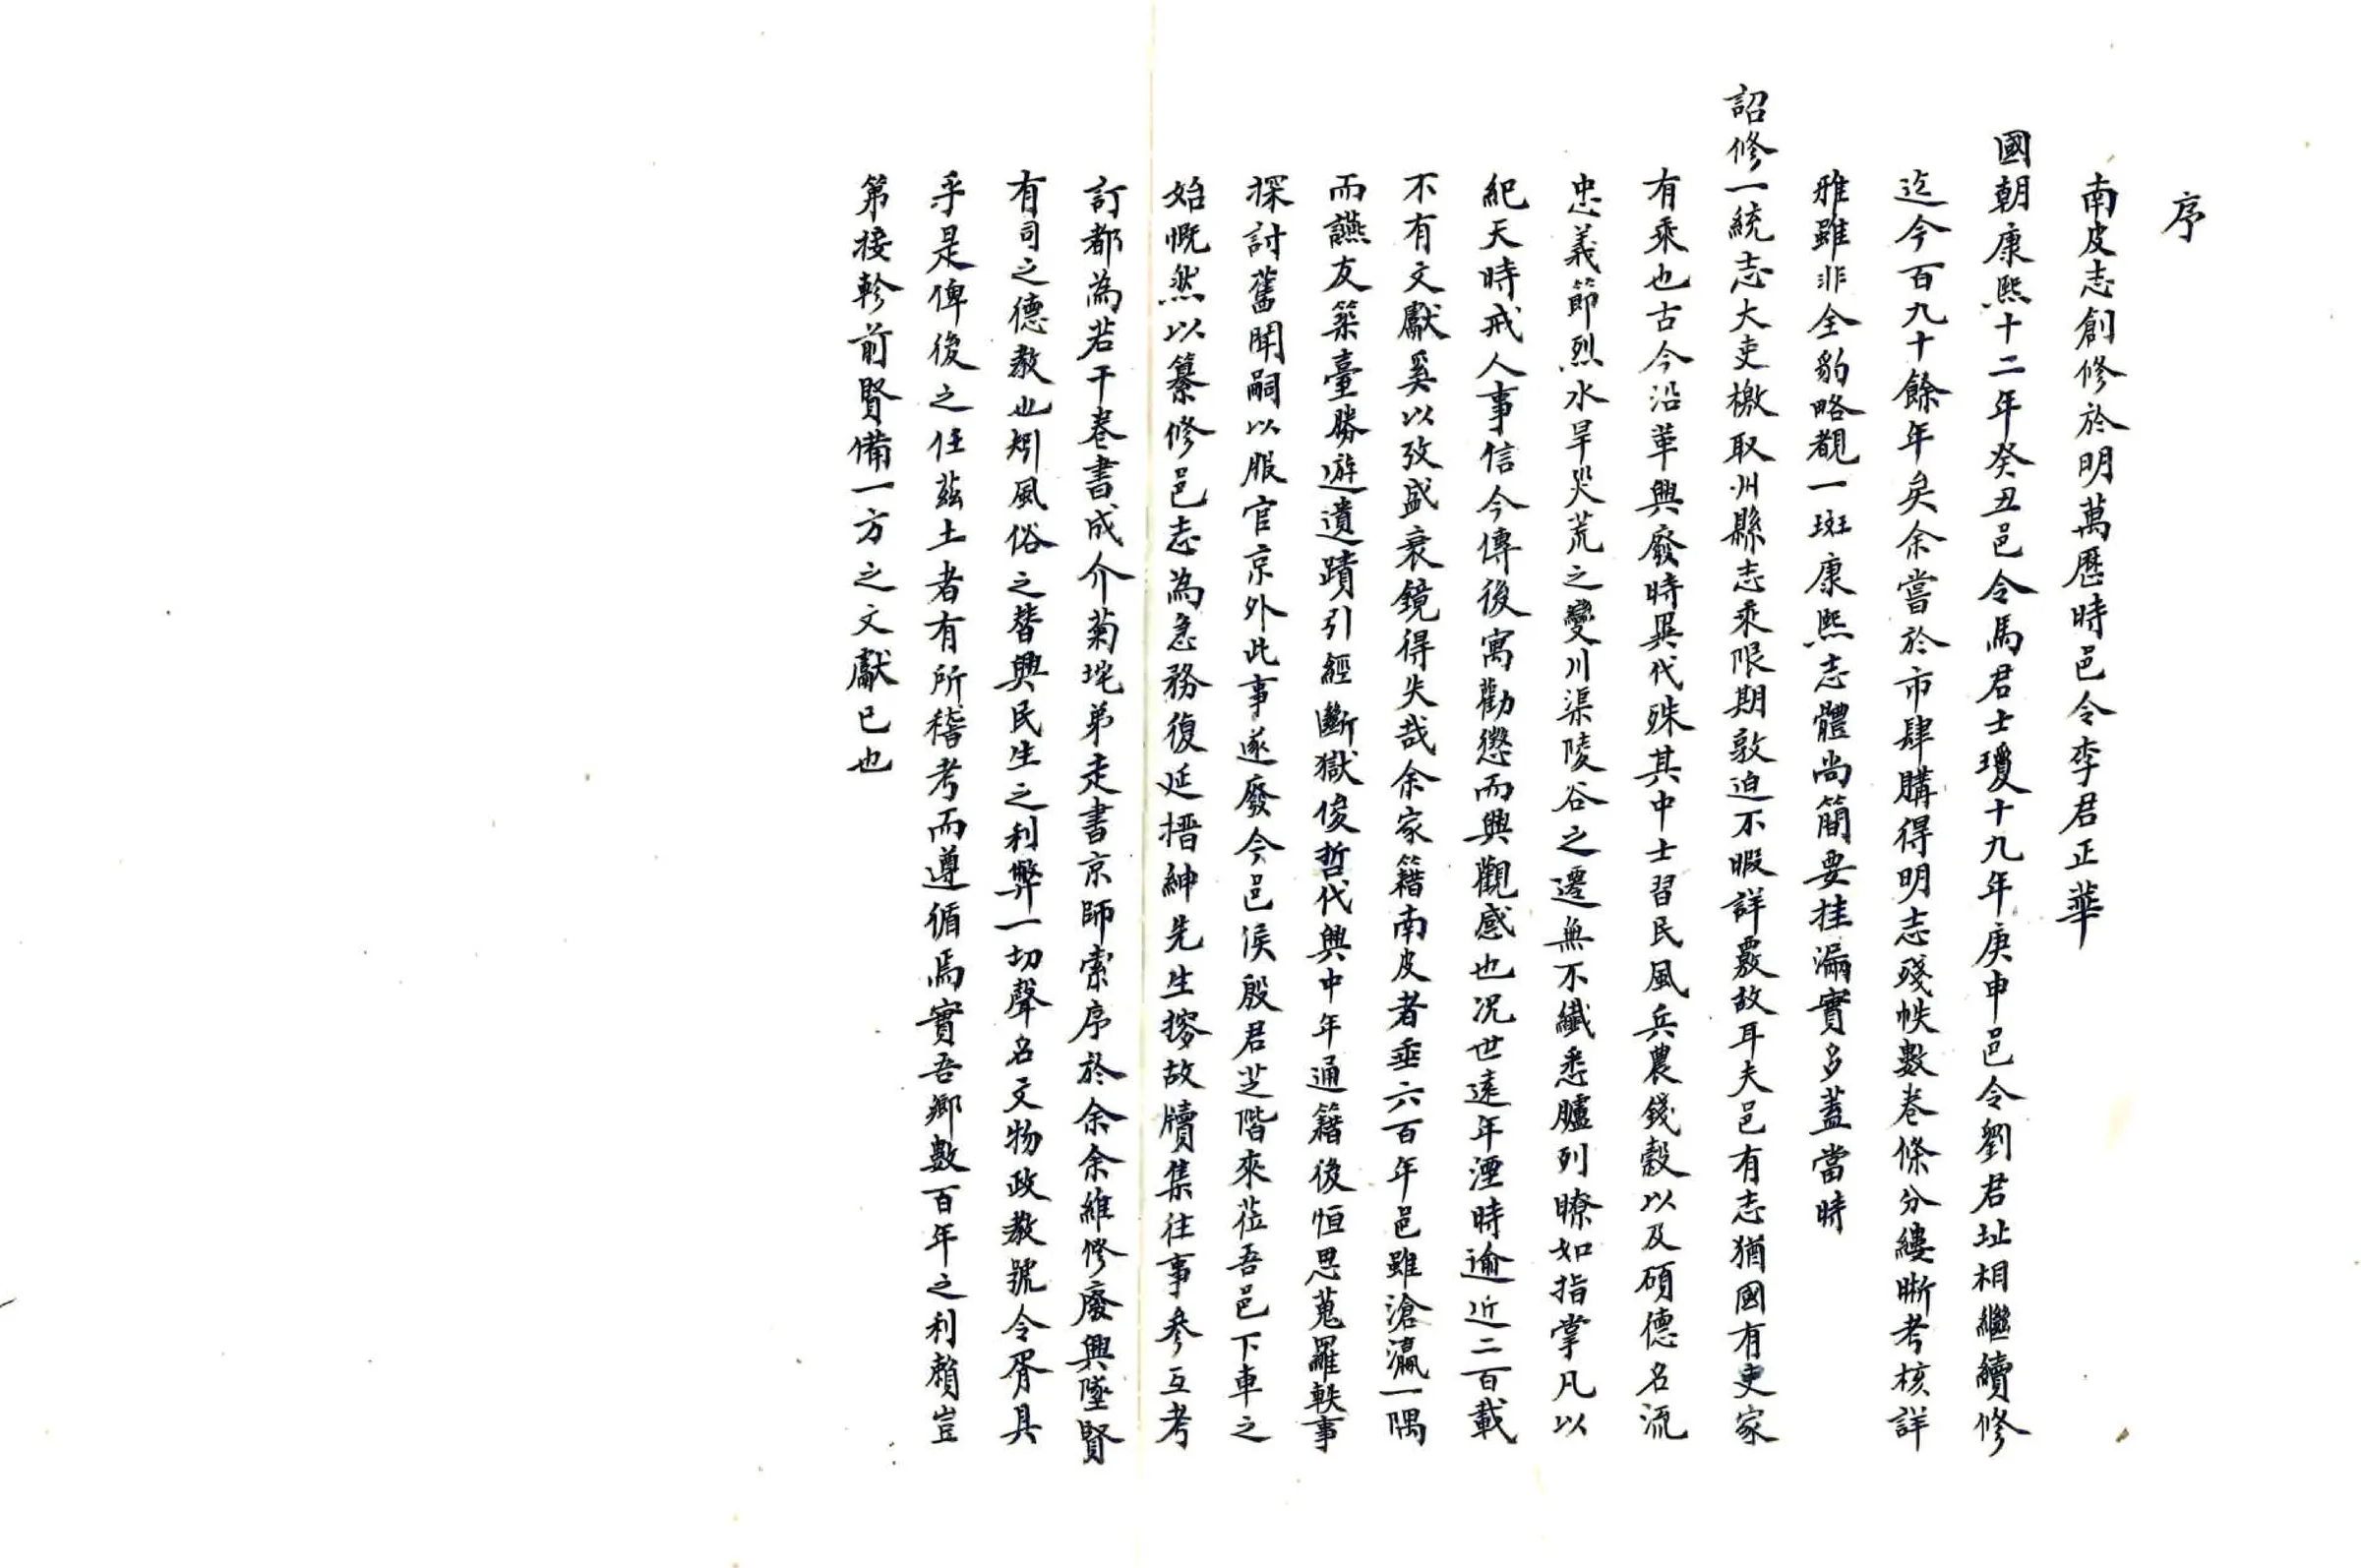 序
南皮志創修於明萬歷時邑令李君正華
國朝康熙十二年癸丑邑令馬君士瓊十九年庚申邑令劉君址相繼續修
迄今百九十餘年矣余嘗於市肆購得明志殘帙數卷條分縷晰考核詳
雅雖非全豹略覩一斑康熙志體尚簡要挂漏實多蓋當時
詔修一統志大吏檄取州縣志乘限期敦迫不暇詳覈故耳夫邑有志猶國有吏家
有乘也古今沿革興廢時異代殊其中士習民風兵農錢穀以及碩德名流
忠義節烈水旱災荒之變川渠陵谷之遷無不纖悉臚列瞭如指掌凡以
紀天時戒人事信今傳後寓勸懲而興觀感也况世遠年湮時逾近二百載
不有文獻奚以攷盛衰鏡得失哉余家籍南皮者垂六百年邑雖滄瀛一隅
而讌友築臺勝遊遺蹟引經斷獄俊哲代興中年通籍後恒思蒐羅軼事
探討舊聞嗣以服官京外此事遂廢今邑侯殷君芝階來蒞吾邑下車之
始慨然以纂修邑志為急務復延搢紳先生摉故牘集往事參互考
訂都為若干卷書成介菊垞弟走書京師索序於余余維修廢興墜賢
有司之德教也矧風俗之替興民生之利弊一切聲名文物政教號令胥具
乎是俾後之任茲土者有所稽考而遵循焉實吾鄉數百年之利賴豈
第接軫前賢備一方之文獻已也